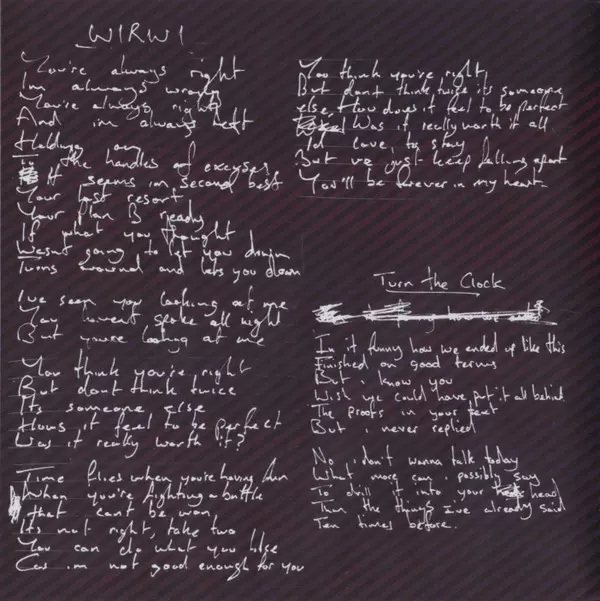 WIRWI
You're always right
I'm always wrong
You're always right
And im always left
Holding on
to the handles of excuses
It seems im second best
Your last resort
Your plan B ready
If what you thought
Wasnt going to let you down
Turns around and lets you down
I've seen you looking at me
You havent spoke all night
But you're looking at me
You think you're right
But dont think twice
Its someone else
Hows it feel to be perfect
Was it really worth it?
Time flies when you're having fun
When you're fighting a battle
that cant be won,
Its not right, take two
You can do what you like
Cos im not good enough for you
You think you're right,
But dont think twice its someone
else, How does it feel to be perfect
Was it really worth it all
Id love to stay
But we just keep falling apart
You'll be forever in my heart.
Turn the Clock
In it funny how we ended up like this
Finished on good terms
But i know you
Wish we could have put it all behind
The proofs in your text
But i never replied
No i dont wanna talk today
What more can i possibly say
To drill it into your head
Than the things I've already said
Ten times before.